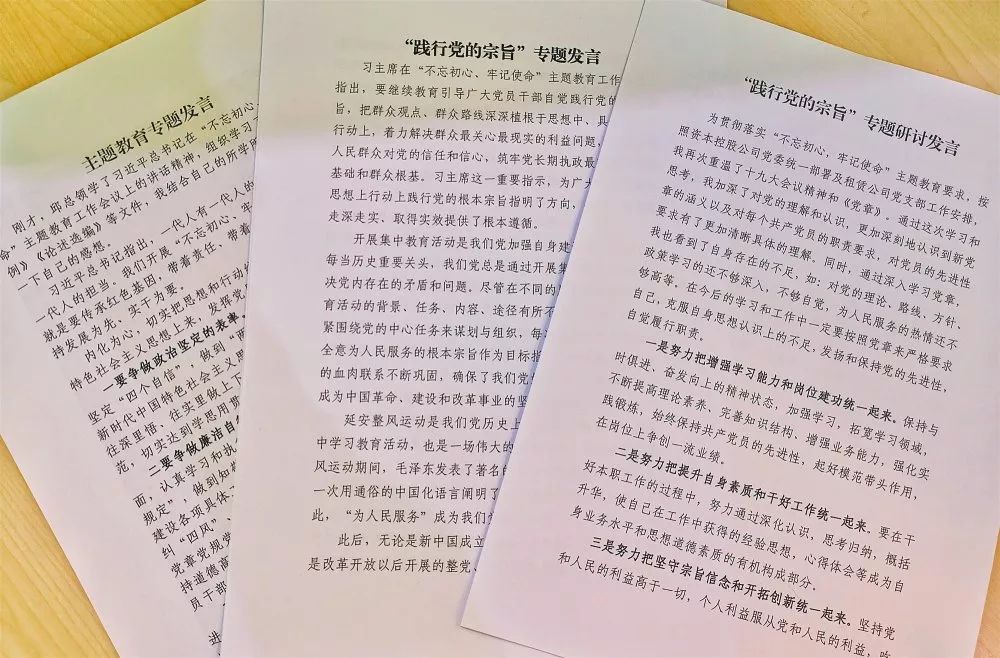 主题教育专题发言
刚才，邱总领学了习近平总书记在“不忘初心、
命”主题教育工作会议上的讲话精神，组织学习了
例》《论述选编》等文件，我结合自己的所学所
一下自己的感想。
习近平总书记指出，一代人有一代人的
一代人的担当。我们开展“不忘初心、牢
就是要传承红色基因，带着责任、带着
持发展为先、实干为要。
内化为心，切实把思想和行动统
特色社会主义思想上来，发挥党
一要争做政治坚定的表率
坚定“四个自信”，做到“两
新时代中国特色社会主义思
往深里悟、往实里做上下
范，切实达到学思用贯
二要争做廉洁自
面，认真学习和执
规定”，做到知敬
建设各项具体
纠“四风”、
党章党规党
持道德高
员干部
进
“践行党的宗旨”专题发言
习主席在“不忘初心、牢记使命”主题教育工作
指出，要继续教育引导广大党员干部自觉践行党的
旨，把群众观点、群众路线深深植根于思想中、具
行动上，着力解决群众最关心最现实的利益问题，
人民群众对党的信任和信心，筑牢党长期执政最
基础和群众根基。习主席这一重要指示，为广大
思想上行动上践行党的根本宗旨指明了方向，
走深走实、取得实效提供了根本遵循。
开展集中教育活动是我们党加强自身建
每当历史重要关头，我们党总是通过开展集
决党内存在的矛盾和问题。尽管在不同的
育活动的背景、任务、内容、途径有所不
紧围绕党的中心任务来谋划与组织，每
全意为人民服务的根本宗旨作为目标指
的血肉联系不断巩固，确保了我们党
成为中国革命、建设和改革事业的坚
延安整风运动是我们党历史上
中学习教育活动，也是一场伟大的
风运动期间，毛泽东发表了著名的
一次用通俗的中国化语言阐明了
此，“为人民服务”成为我们
此后，无论是新中国成立
是改革开放以后开展的整党
“践行党的宗旨”专题研讨发言
为贯彻落实“不忘初心，牢记使命”主题教育要求，按
照资本控股公司党委统一部署及租赁公司党支部工作安排，
我再次重温了十九大会议精神和《党章》。通过这次学习和
思考，我加深了对党的理解和认识，更加深刻地认识到新党
章的涵义以及对每个共产党员的职责要求，对党员的先进性
要求有了更加清晰具体的理解。同时，通过深入学习党章，
我也看到了自身存在的不足，如：对党的理论、路线、方针、
政策学习的还不够深入，不够自觉，为人民服务的热情还不
够高等。在今后的学习和工作中一定要按照党章来严格要求
自己，克服自身思想认识上的不足，发扬和保持党的先进性，
自觉履行职责。
一是努力把增强学习能力和岗位建功统一起来。保持与
时俱进、奋发向上的精神状态，加强学习，拓宽学习领域，
不断提高理论素养、完善知识结构、增强业务能力，强化实
践锻炼，始终保持共产党员的先进性，起好模范带头作用，
在岗位上争创一流业绩。
二是努力把提升自身素质和干好工作统一起来。要在干
好本职工作的过程中，努力通过深化认识，思考归纳，概括
升华，使自己在工作中获得的经验思想，心得体会等成为自
身业务水平和思想道德素质的有机构成部分。
三是努力把坚守宗旨信念和开拓创新统一起来。坚持党
和人民的利益高于一切，个人利益服从党和人民的利益，